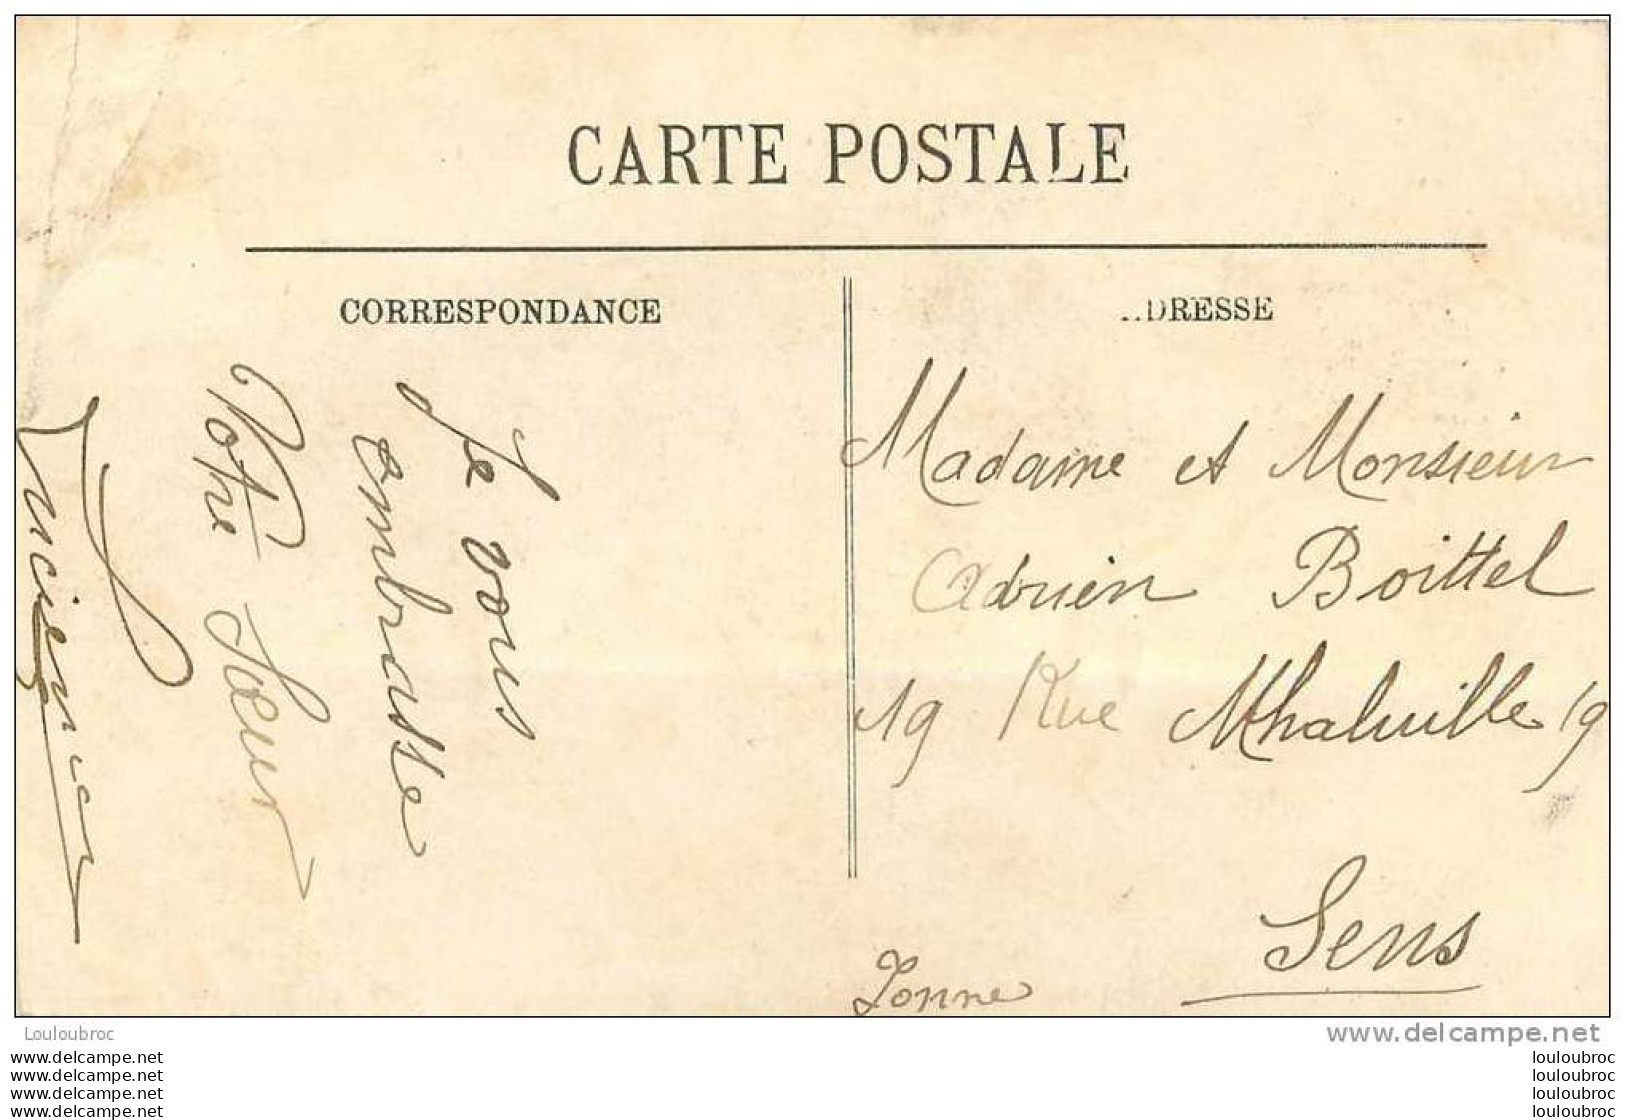 CARTE POSTALE
CORRESPONDANCE
Je vous
embrasse
Votre Soeur
Lucienne
DRESSE
Madame et Monsieur
Adrien Boittel
19 Rue Thaluille 19
Sens
Yonne
Louloubroc
delcampe.net
www.delcampe.net
www.delcampe.net
www.delcampe.net
www.delcampe.net
louloubroc
louloubroc
louloubroc
louloubroc